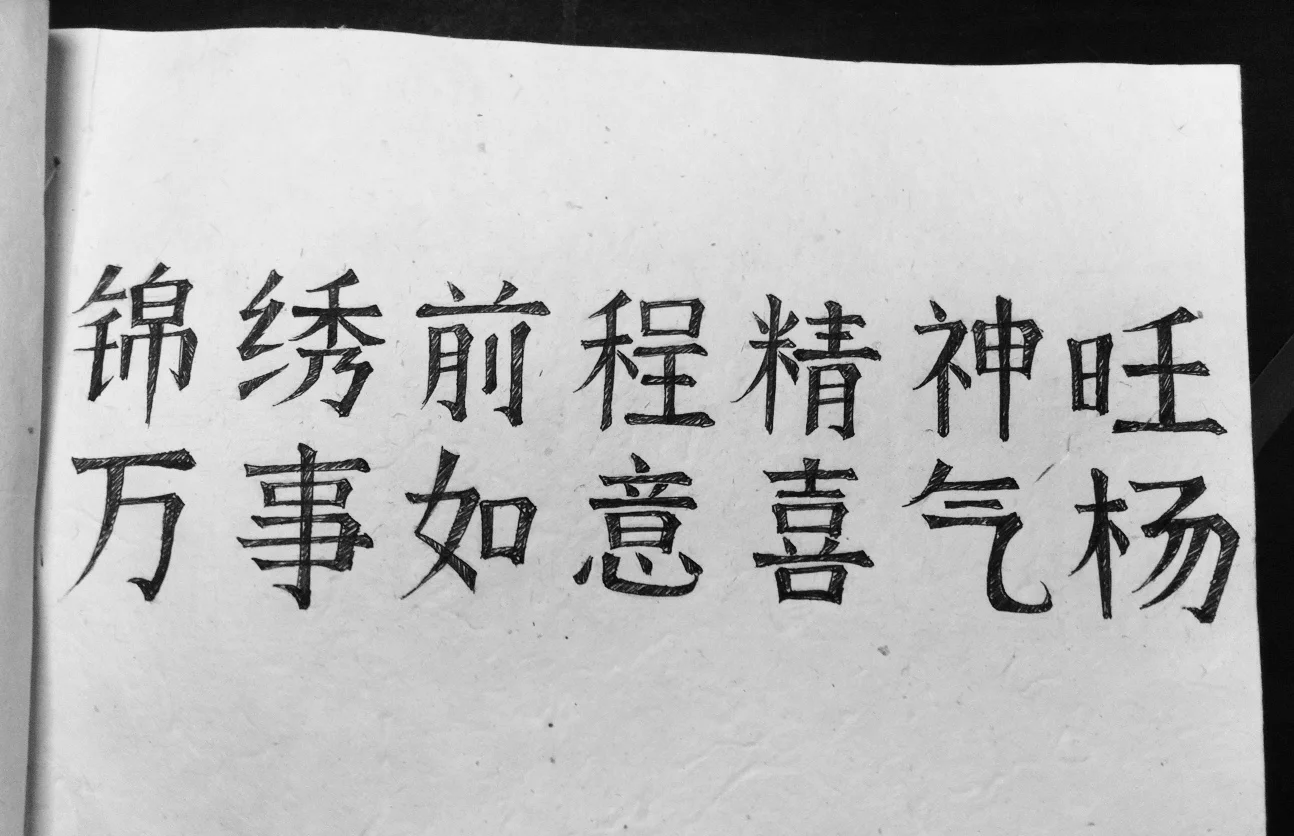 锦绣前程精神旺
万事如意喜气杨